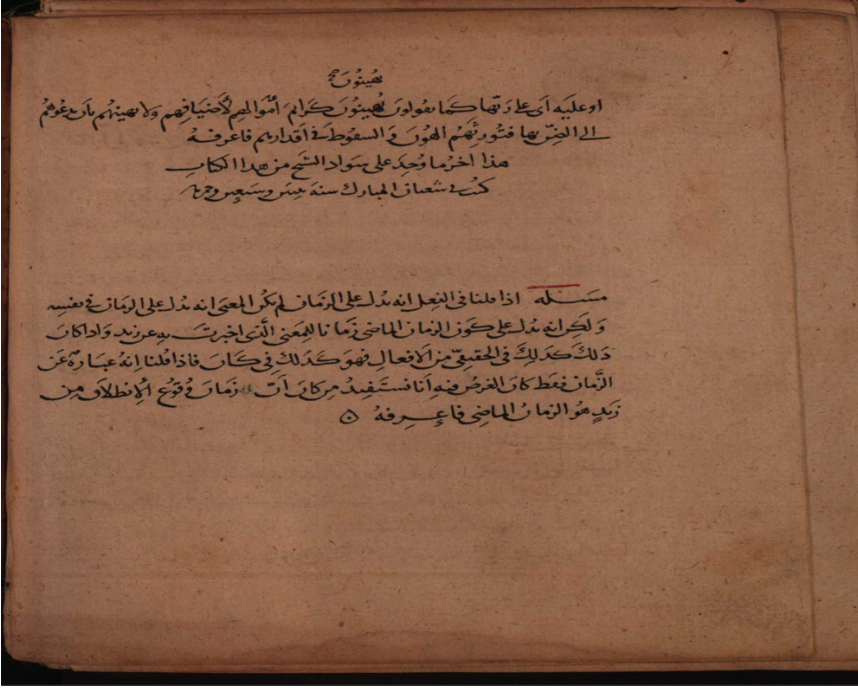 يهينون
او عليه اى على ربها كما يقولون يُهينُونَ كَرائم أموالهم لأضيافهم ولا يهينهم بأن يدعوهم
الى الضن بها فتورثهم الهون والسقوط فى أقدارهم فاعرفه
هذا اخر ما وجد على سواد الشيخ من هذا الكتاب
كتب فى شعبان المبارك سنة وسبعين
مسئلة اذا قلنا فى الفعل انه يدل على الزمان لم يكن المعنى انه يدل على الزمان فى نفسه
ولكن انه يدل على كون الزمان الماضى زمانا للمعنى الذى اخبرت به عن زيد واذا كان
ذلك كذلك فى الحقيقى من الافعال فهو كذلك فى كان فاذا قلنا انه عبارة عن
الزمان فقط كان الغرض فيه أنا نستفيد من كان أن زمان وقوع الإنطلاق من
زيد هو الزمان الماضى فاعرفه